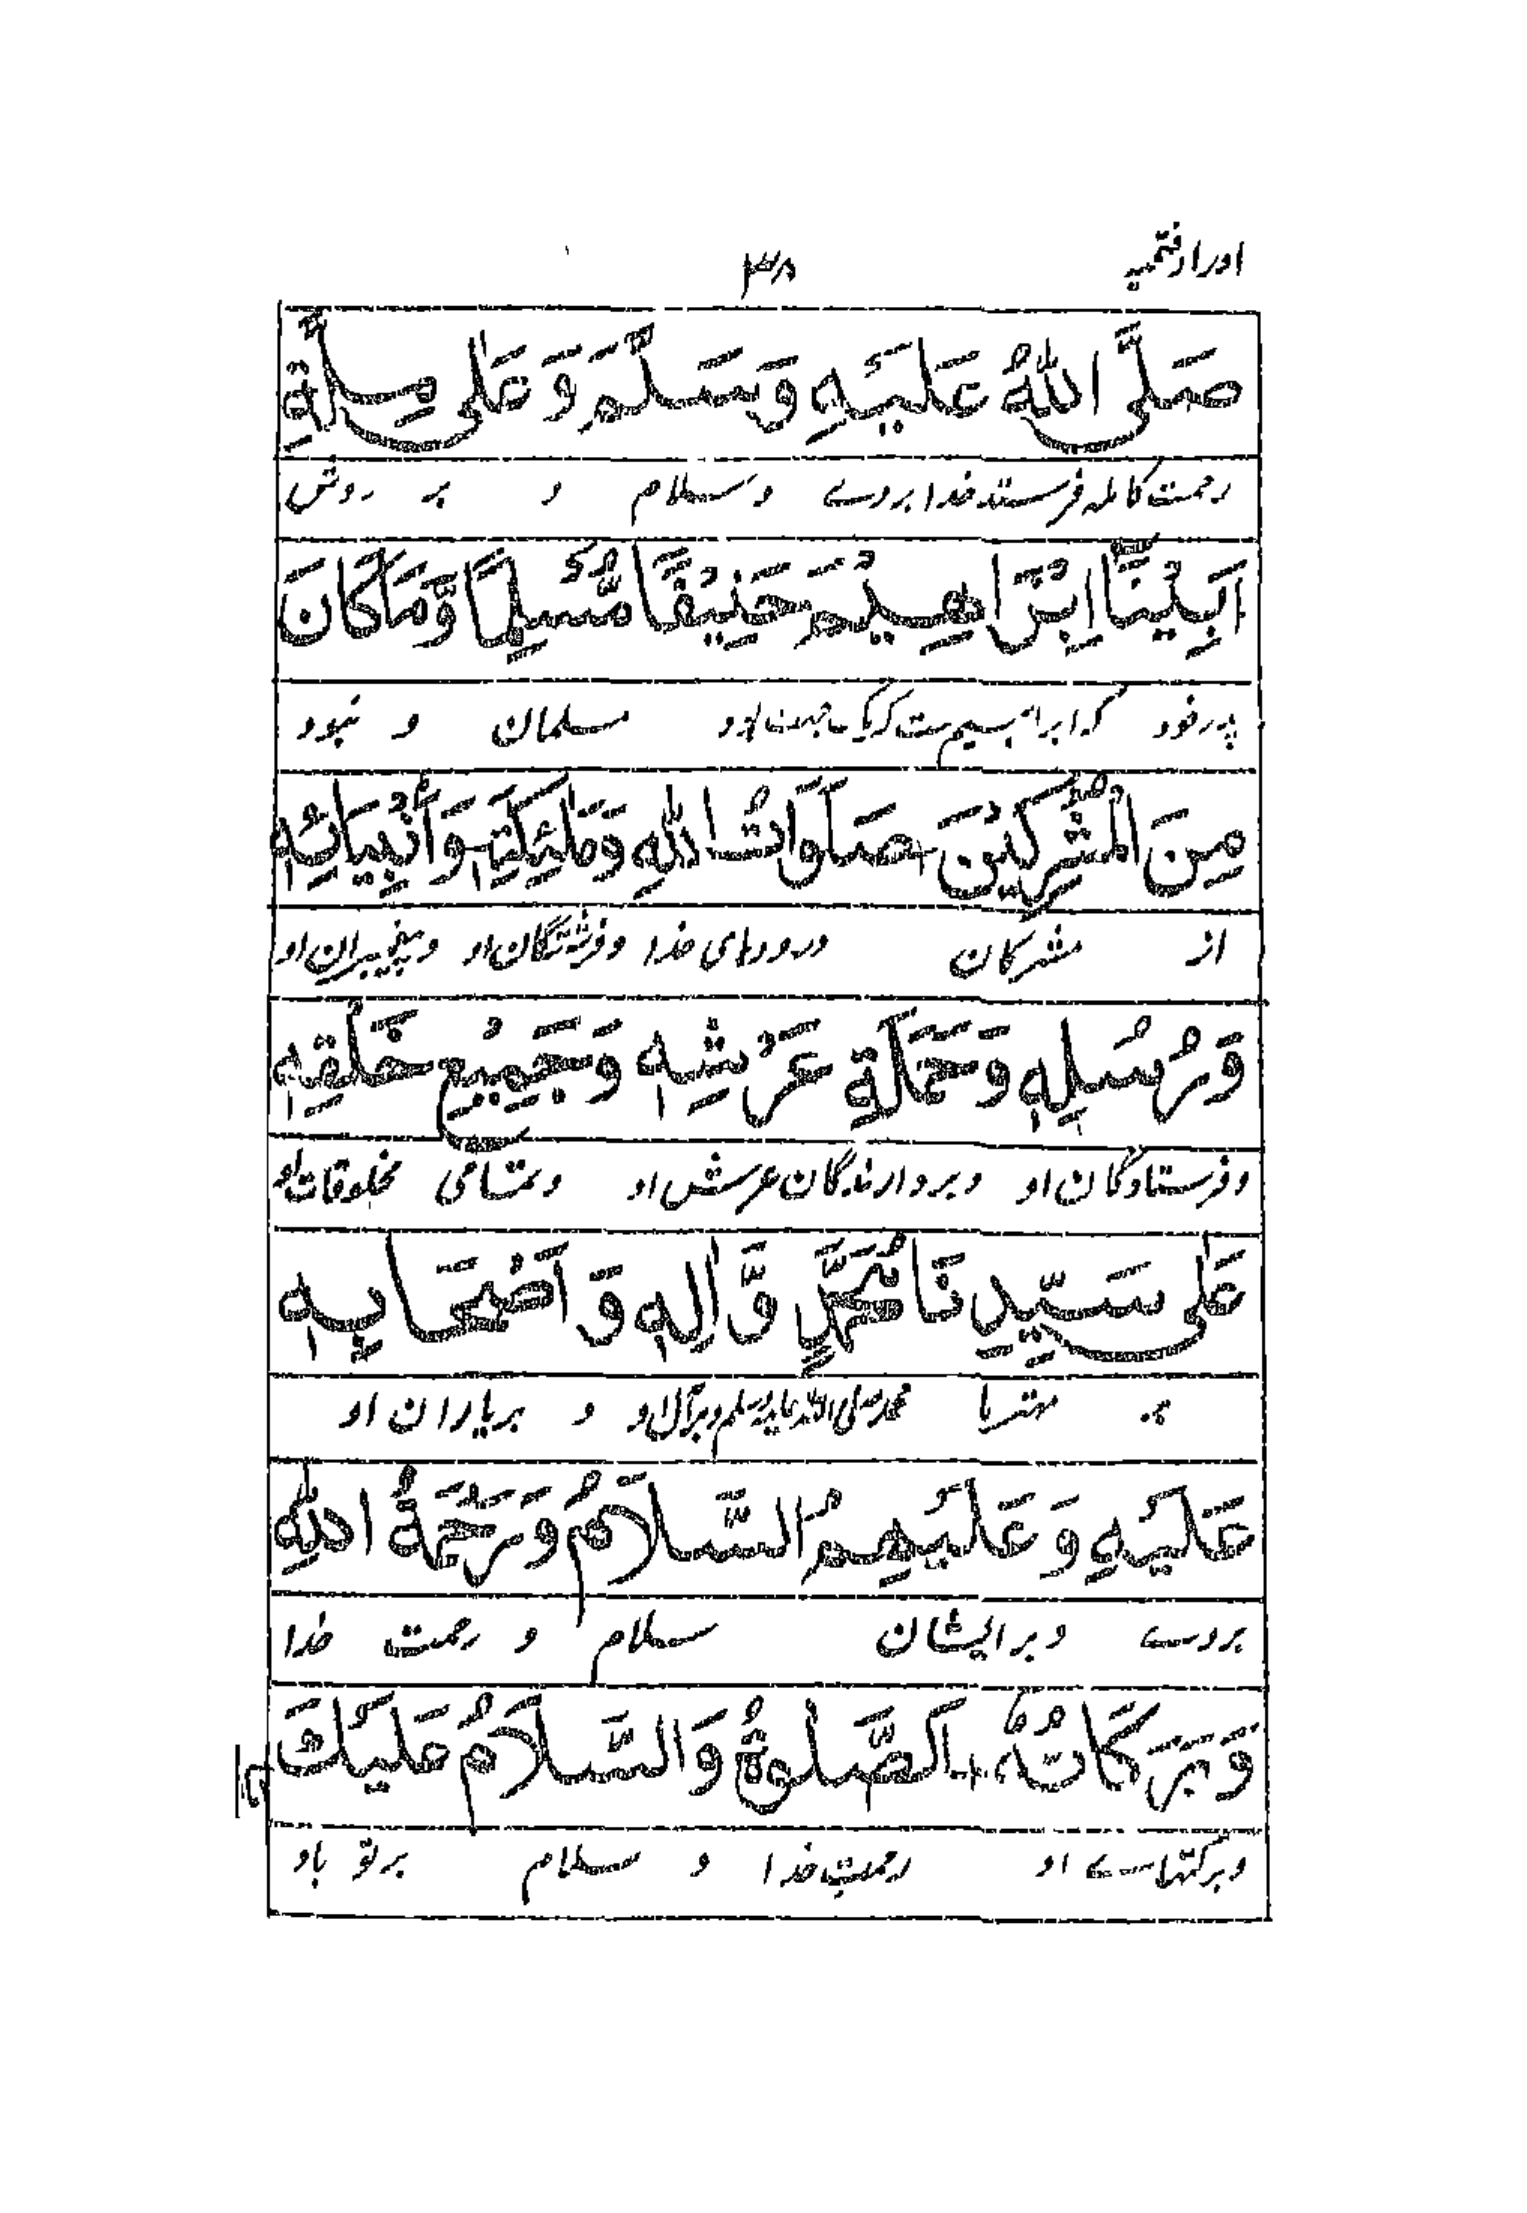 اوراد فتحیه ۳۸
صَلَّى اللهُ عَلَيْهِ وَسَلَّمَ وَعَلٰى مِلَّةِ
رحمت کامله فرستد خدا بروے و سلام و بر روش
اَبِيْنَا اِبْرَاهِيْمَ حَنِيْفًا مُّسْلِمًا وَّمَا كَانَ
پدر خود که ابراهیم ست مسلمان و نبود
مِنَ الْمُشْرِكِيْنَ صَلَوَاتُ اللهِ وَمَلٰئِكَتِهٖ وَاَنْبِيَائِهٖ
از مشرکان درودهای خدا و فرشتگان او و پیغمبران او
وَرُسُلِهٖ وَحَمَلَةِ عَرْشِهٖ وَجَمِيْعِ خَلْقِهٖ
و فرستادگان او و بردارندگان عرش او و تمامی مخلوقات او
عَلٰى سَيِّدِنَا مُحَمَّدٍ وَّاٰلِهٖ وَاَصْحَابِهٖ
بر مهتر ما محمد صلی الله علیه وسلم و بر آل او و بر یاران او
عَلَيْهِ وَعَلَيْهِمُ السَّلَامُ وَرَحْمَةُ اللهِ
بروے و بر ایشان سلام و رحمت خدا
وَبَرَكَاتُهٗ اَلصَّلٰوةُ وَالسَّلَامُ عَلَيْكَ
و برکتهاے او رحمت خدا و سلام بر تو باد